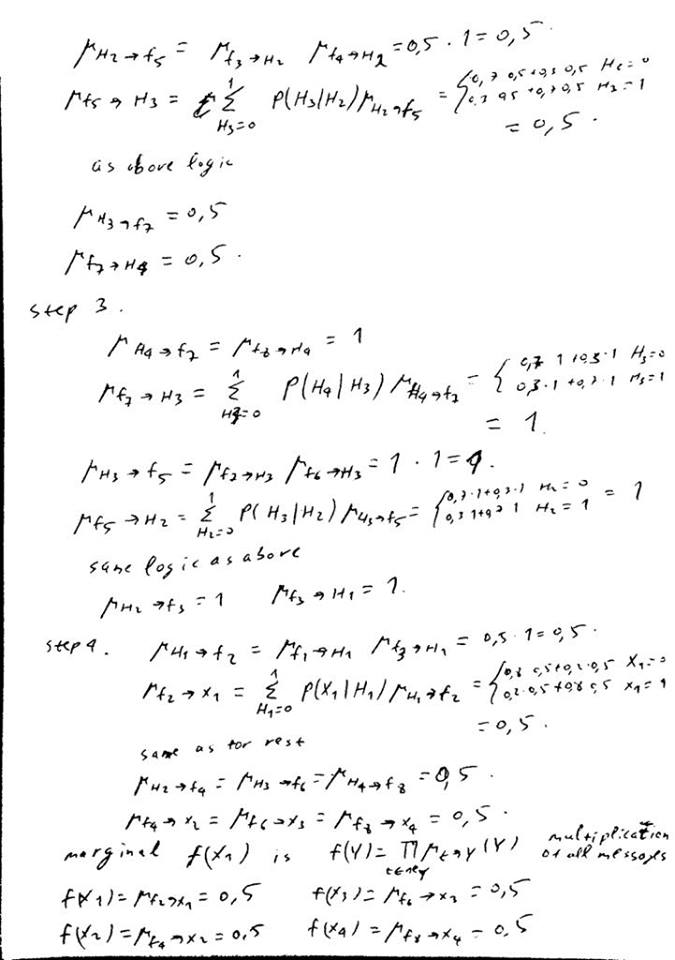 μH2→f5 = μf3→H2 μf4→H2 = 0,5 · 1 = 0,5.
μf5→H3 = Σ 1 H3=0 P(H3|H2) μH2→f5 = { 0,7 0,5+0,3 0,5 H2=0
0,3 0,5+0,7 0,5 H3=1
= 0,5.
as above logic
μH3→f7 = 0,5
μf7→H4 = 0,5.
step 3.
μH4→f7 = μf8→H4 = 1
μf7→H3 = Σ 1 =0 P(H4|H3) μH4→f7 = { 0,7 1 +0,3·1 H3=0
0,3·1+0,7·1 H3=1
= 1.
μH3→f5 = μf7→H3 μf6→H3 = 1·1=1.
μf5→H2 = Σ 1 H2=0 P(H3|H2) μH3→f5 = { 0,7·1+0,3·1 H2=0
0,3 1+0,7 1 H2=1 = 1
same logic as above
μH2→f3 = 1 μf3→H1 = 1.
step 4. μH1→f2 = μf1→H1 μf3→H1 = 0,5·1=0,5.
μf2→x1 = Σ 1 H1=0 P(X1|H1) μH1→f2 = { 0,8 0,5+0,2·0,5 X1=0
0,2·0,5+0,8 0,5 X1=1
= 0,5.
same as for rest
μH2→f4 = μH3→f6 = μH4→f8 = 0,5.
μf4→x2 = μf6→x3 = μf8→x4 = 0,5.
marginal f(X1) is f(Y) = Π μt→y (Y) multiplication
of all messages
f(X1) = μf2→x1 = 0,5 f(X3) = μf6→x3 = 0,5
f(X2) = μf4→x2 = 0,5 f(X4) = μf8→x4 = 0.5